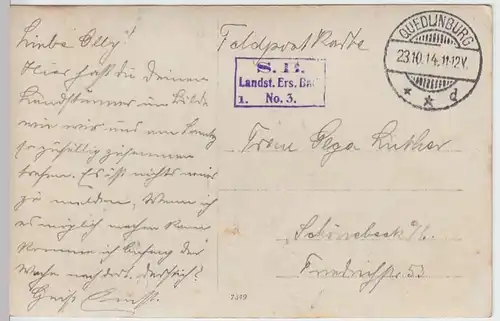 Liebe Olly!
Hier hast du deinen
Landstürmer im Bilde
wie wir uns am
so zufällig zusammen
trafen. Es ist nichts neues
zu melden, Wenn ich
es möglich machen kann
komme ich Anfang der
Woche nach dort.
Gruß Ernst.
Feldpostkarte
S. B.
Landst. Ers. Bat.
1. No. 3.
QUEDLINBURG
23.10.14. 11-12V.
* * d
Frau Olga Luther
Schönebeck a/E.
Friedrichstr. 53
7349